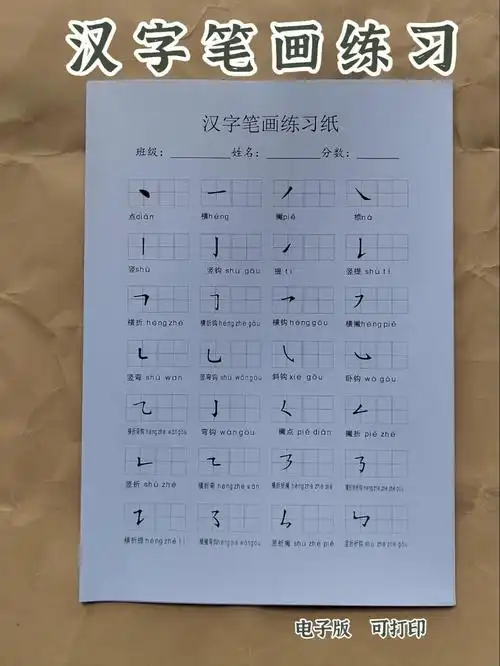 汉字笔画练习
汉字笔画练习纸
班级： 姓名： 分数：
点diǎn 横héng 撇piě 捺nà
竖shù 竖钩 shù gōu 提 tí 竖提 shù tí
横折 héng zhé 横折钩 héng zhé gōu 横钩 héng gōu 横撇 héng piě
竖弯 shù wān 竖弯钩 shù wān gōu 斜钩 xié gōu 卧钩 wò gōu
弯钩 wān gōu 撇点 piě diǎn 撇折 piě zhé
竖折 shù zhé 横折弯 héng zhé wān 横折折撇 héng zhé zhé piě
横折提 héng zhé tí 横撇弯钩 héng piě wān gōu 竖折撇 shù zhé piě 竖折折钩 shù zhé zhé gōu
电子版 可打印